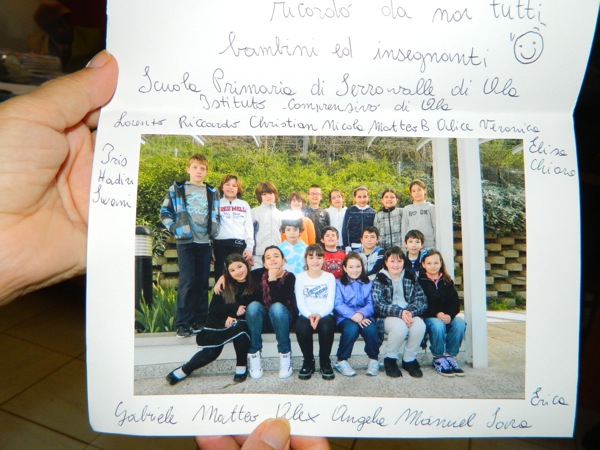 ricordo da noi tutti
bambini ed insegnanti
Scuola Primaria di Serravalle di Ala
Istituto Comprensivo di Ala
Lorenzo Riccardo Christian Nicola Matteo B Alice Veronica
Elisa
Chiara
Iris
Hadir
Swami
Erica
Gabriele Matteo Alex Angela Manuel Sara